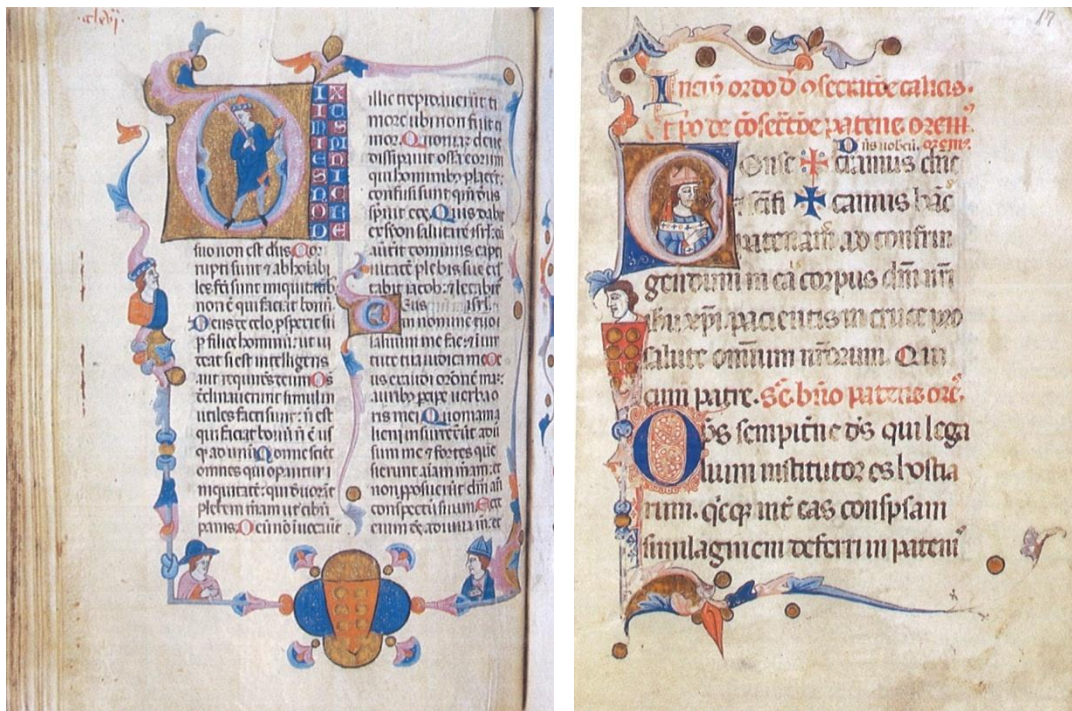 cxlvij
suo non est deus Cor
rupti sunt ⁊ abhoiabi
les fci sunt iniquitatib
non ē qui faciat bonū
Deus de celo ꝓspexit sū
p filios hominū: ut ui
deat si est intelligens
aut requirēs deum Oēs
declinauerunt simul in
utiles facti sunt: n̄ est
qui faciat bonū n̄ ē us
qȝ ad unū Nonne sciēt
omnes qui opantur i
niquitatē: qui deuorāt
plebem meam ut cibū
panis Deū nō iuocauerūt
illic trepidauerūt ti
more ubi non fuit ti
mor. Quoniam deus
dissipauit ossa eorum
qui hominibȝ placēt:
confusi sunt qm̄ deus
spreuit eos. Quis dabit
ex syon salutare isrl: cū
auertit dominus capti
uitatē plebis sue exl
tabit iacob: ⁊ letabit
Deus isrl.
in nomine tuo
saluum me fac: ⁊ in uir
tute tua iudica me De
us exaudi orōnē meā:
auribȝ pcipe uerba o
ris mei Quoniam a
lieni insurrexerūt adū
sum me ⁊ fortes que
sierunt aīam meam: et
non proposuerūt deum an
conspectū suum Ecce
enim ds adiuuat me: et
17
Incipit ordo d' ɔsecratōe calicis.
Et pō de cōsecrōe patene oremꝰ.
Dns uobcū. oremꝰ.
Conse ✠ cramus due
⁊ scifi ✠ camus hāc
patenam ad confrin
gendum in ea corpus dm̄ nr̄i
ihu xp̄i pacientis in cruce pro
salute omnium nostrorum. Qui
cum patre. Sc̄. bn̄io patene ore.
Ops sempitne ds qui lega
lium institutor es hostia
rum. qīqȝ int eas conspsam
similaginem deferri in pateni